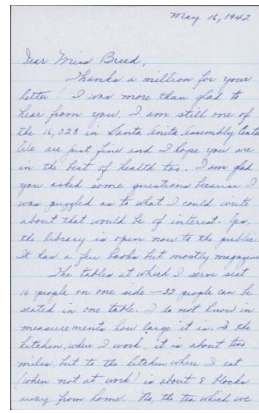 May 16, 1942
Dear Miss Breed,
Thanks a million for your
letter! I was more than glad to
hear from you. I am still one of
the 16, 223 in Santa Anita Assembly
We are just fine and I hope you are
in the best of health too. I am glad
you asked some questions because I
was puzzled as to what I could write
about that would be of interest. Yes,
the library is open now to the public.
It has a few books but mostly magazines
The tables at which I serve seat
16 people on one side — 32 people can be
seated in one table. I do not know in
measurements how large it is. I the
kitchen, where I work, it is about two
miles but to the kitchen where I eat
(when not at work) is about 8 blocks
away from home. No, the tea which we